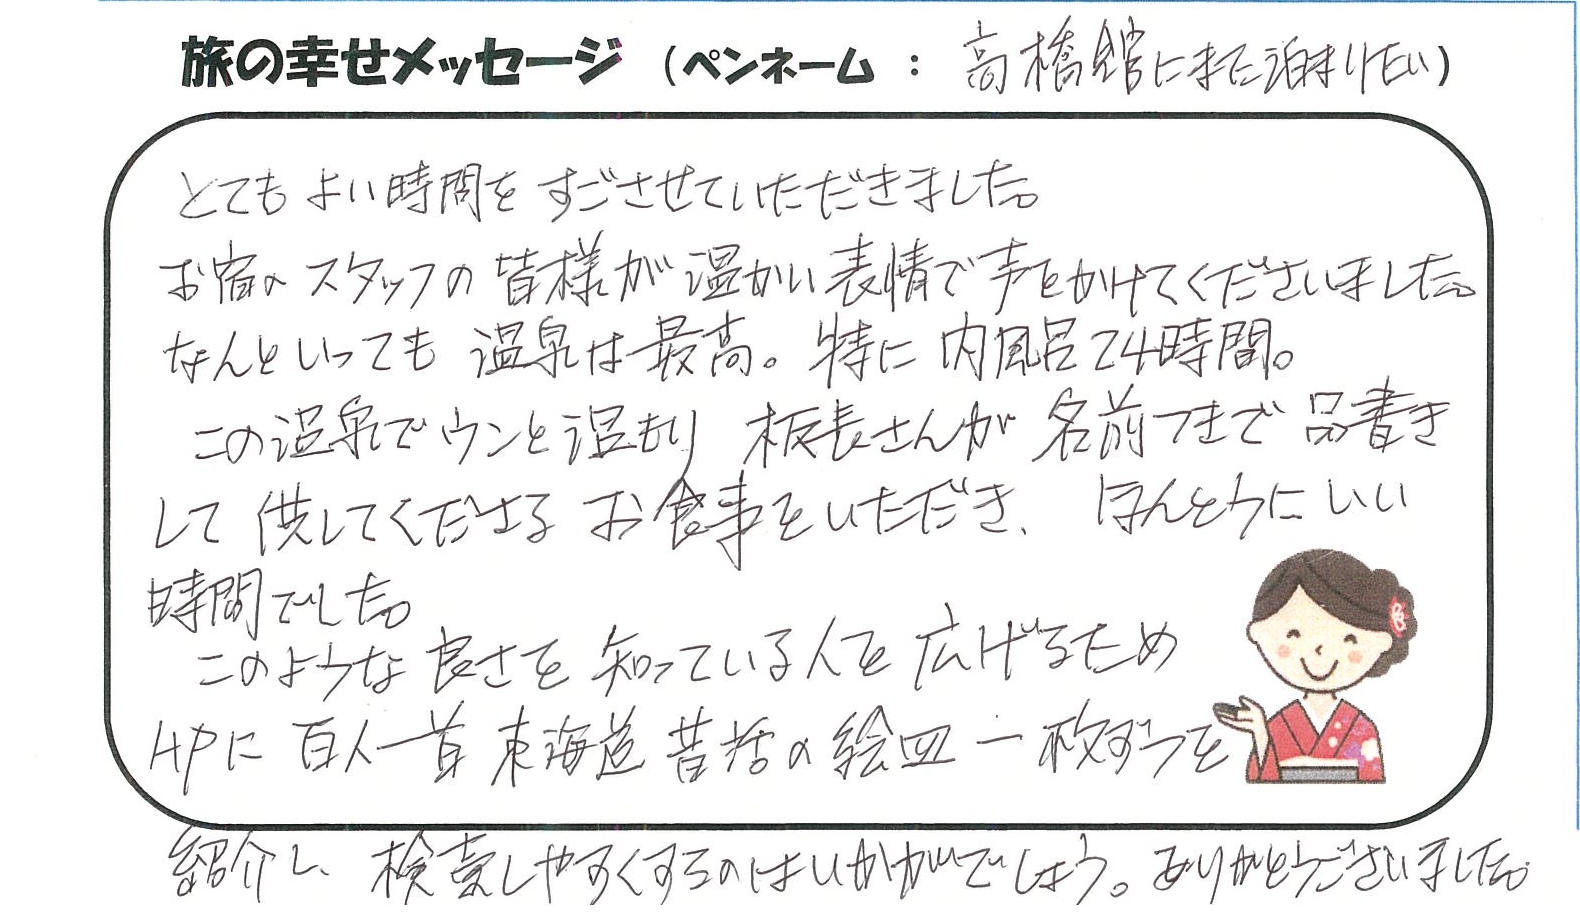 旅の幸せメッセージ （ペンネーム ： 高橋館にまた泊まりたい）
とてもよい時間をすごさせていただきました。
お宿のスタッフの皆様が温かい表情で声をかけてくださいました。
なんといっても温泉は最高。特に内風呂24時間。
この温泉でウンと温もり板長さんが名前つきで品書き
して供してくださるお食事をいただき、ほんとうにいい
時間でした。
このような良さを知っている人を広げるため
HPに百人一首東海道昔話の絵皿一枚ずつを
紹介し、検索しやすくするのはいかがでしょう。ありがとうございました。